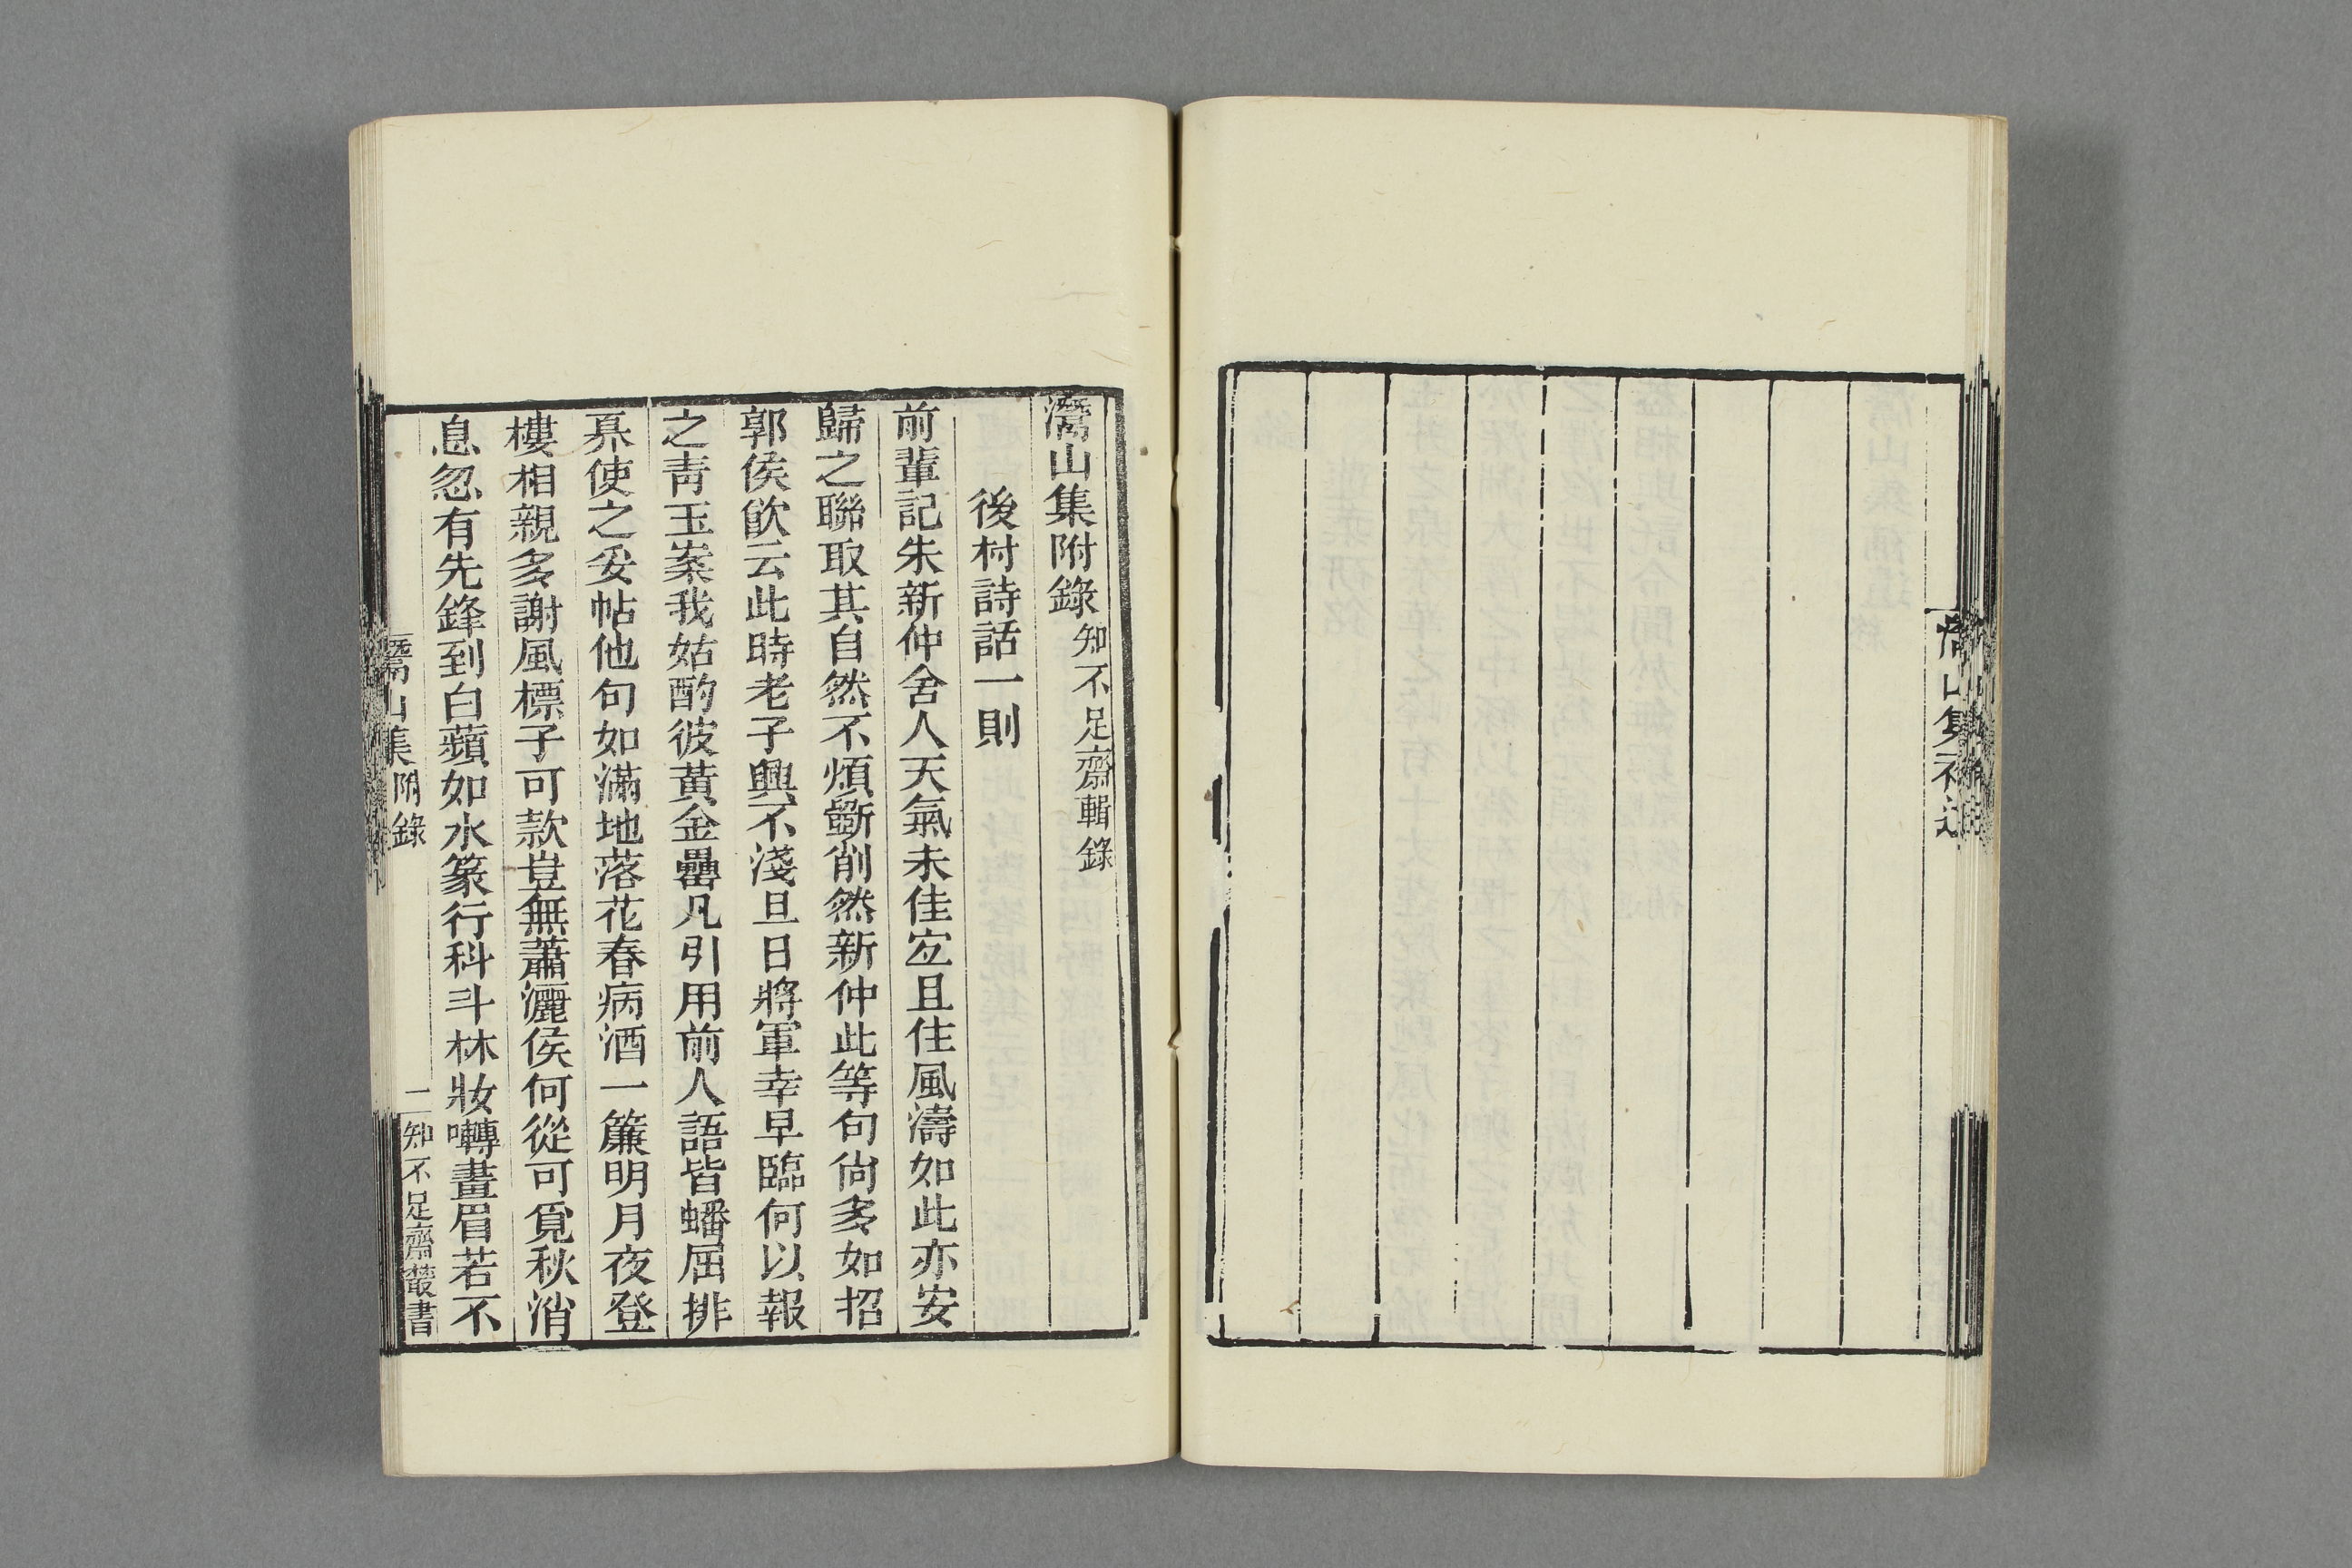 灊山集附錄 知不足齋輯錄
後村詩話一則
前輩記朱新仲舍人天氣未佳宐且住風濤如此亦安
歸之聯取其自然不煩斵削然新仲此等句尙多如招
郭侯飮云此時老子興不淺旦日將軍幸早臨何以報
之靑玉案我姑酌彼黃金罍凡引用前人語皆蟠屈排
奡使之妥帖他句如滿地落花春病酒一簾明月夜登
樓相親多謝風標子可款豈無蕭灑侯何從可覓秋消
息忽有先鋒到白蘋如水篆行科斗林妝囀畫眉若不
灊山集附錄 一 知不足齋叢書